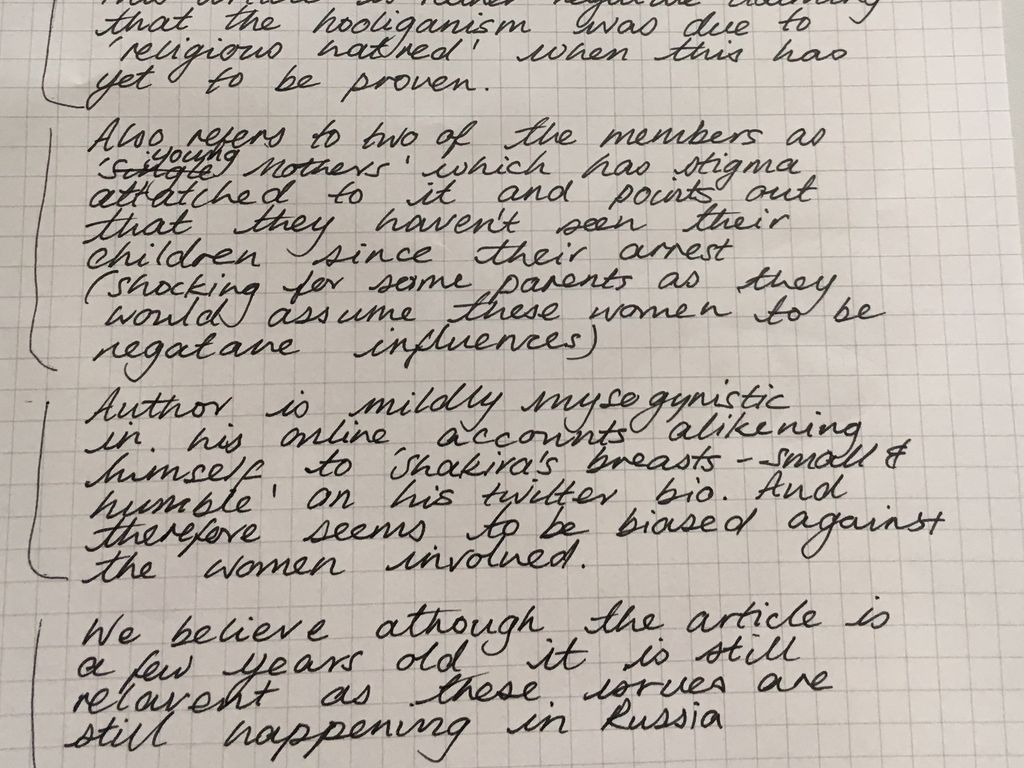 that the hooliganism was due to
'religious hatred' when this has
yet to be proven.
Also refers to two of the members as
young
'single Mothers' which has stigma
attatched to it and points out
that they haven't seen their
children since their arrest
(shocking for some parents as they
would assume these women to be
negatave influences)
Author is mildly mysogynistic
in his online accounts alikening
himself to 'shakira's breasts - small &
humble' on his twitter bio. And
therefore seems to be biased against
the women involved.
We believe athough the article is
a few years old it is still
relavent as these issues are
still happening in Russia